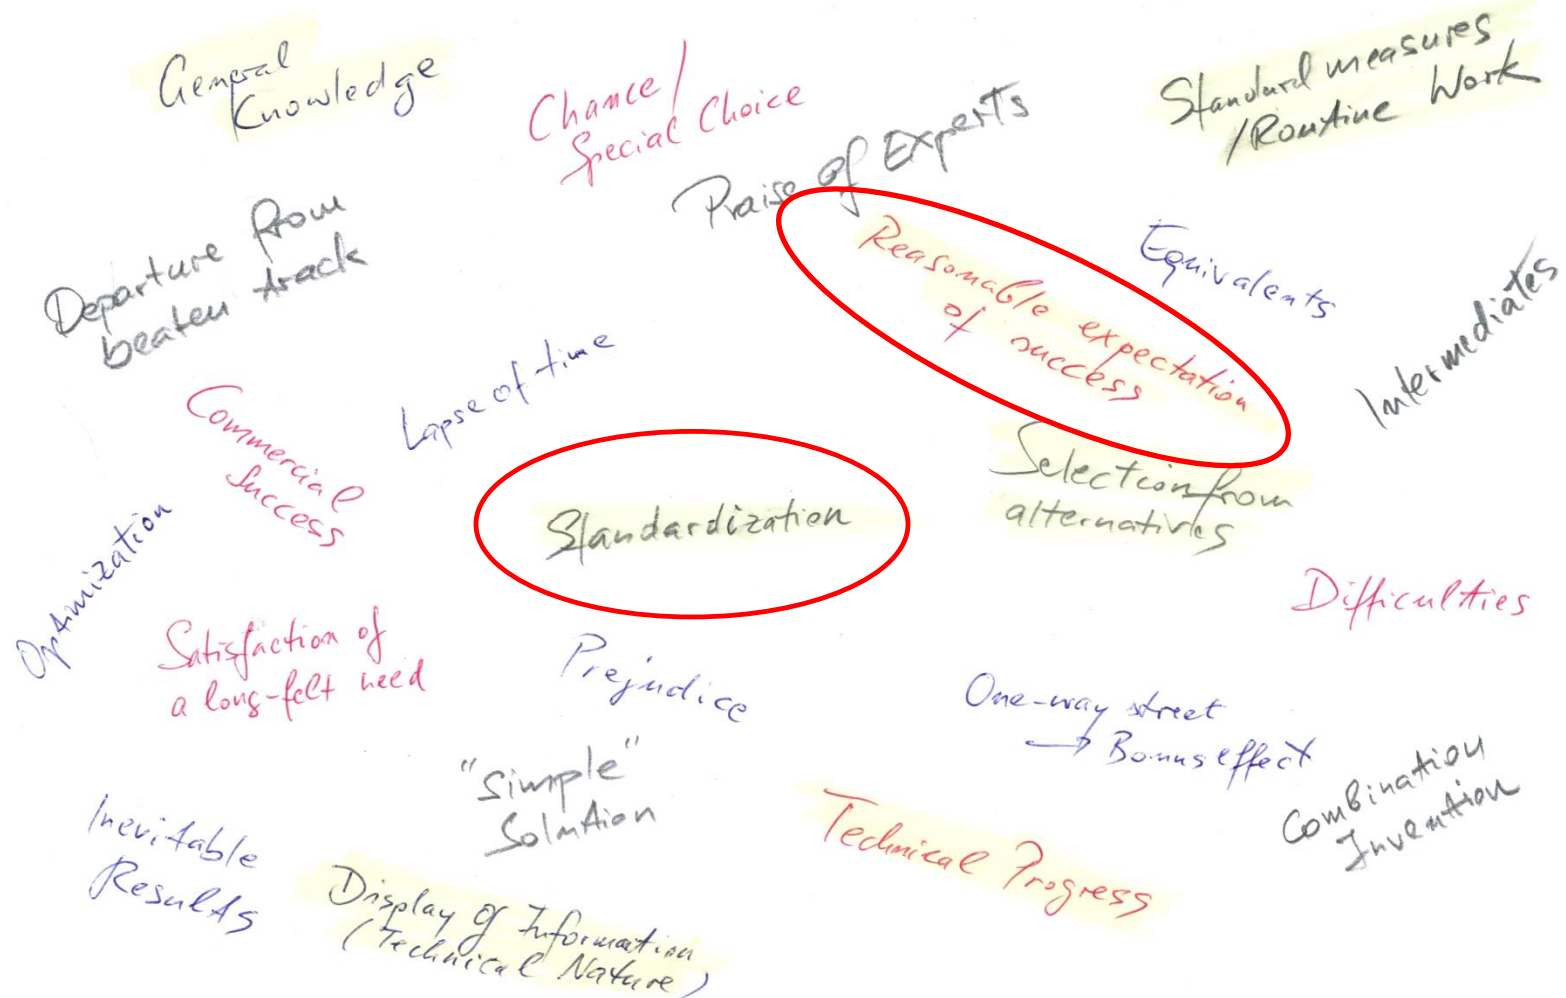 General
Knowledge
Chance/
Special Choice
Praise of Experts
Standard measures
/Routine Work
Departure from
beaten track
Reasonable expectation
of success
Equivalents
Intermediates
Commercial
Success
Lapse of time
Standardization
Selection from
alternatives
Optimization
Satisfaction of
a long-felt need
Prejudice
Difficulties
One-way street
→ Bonus effect
"Simple"
Solution
Combination
Invention
Inevitable
Results
Technical Progress
Display of Information
(Technical Nature)